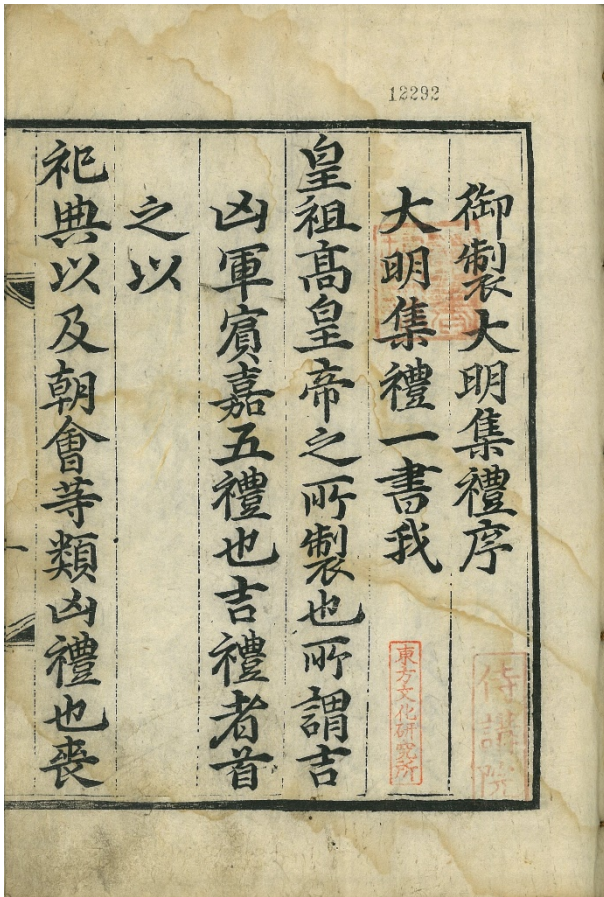 12292
御製大明集禮序
大明集禮一書我
皇祖高皇帝之所製也所謂吉
凶軍賔嘉五禮也吉禮者首
之以
祀典以及朝會䓁類凶禮也喪
東方文化研究所
侍講院